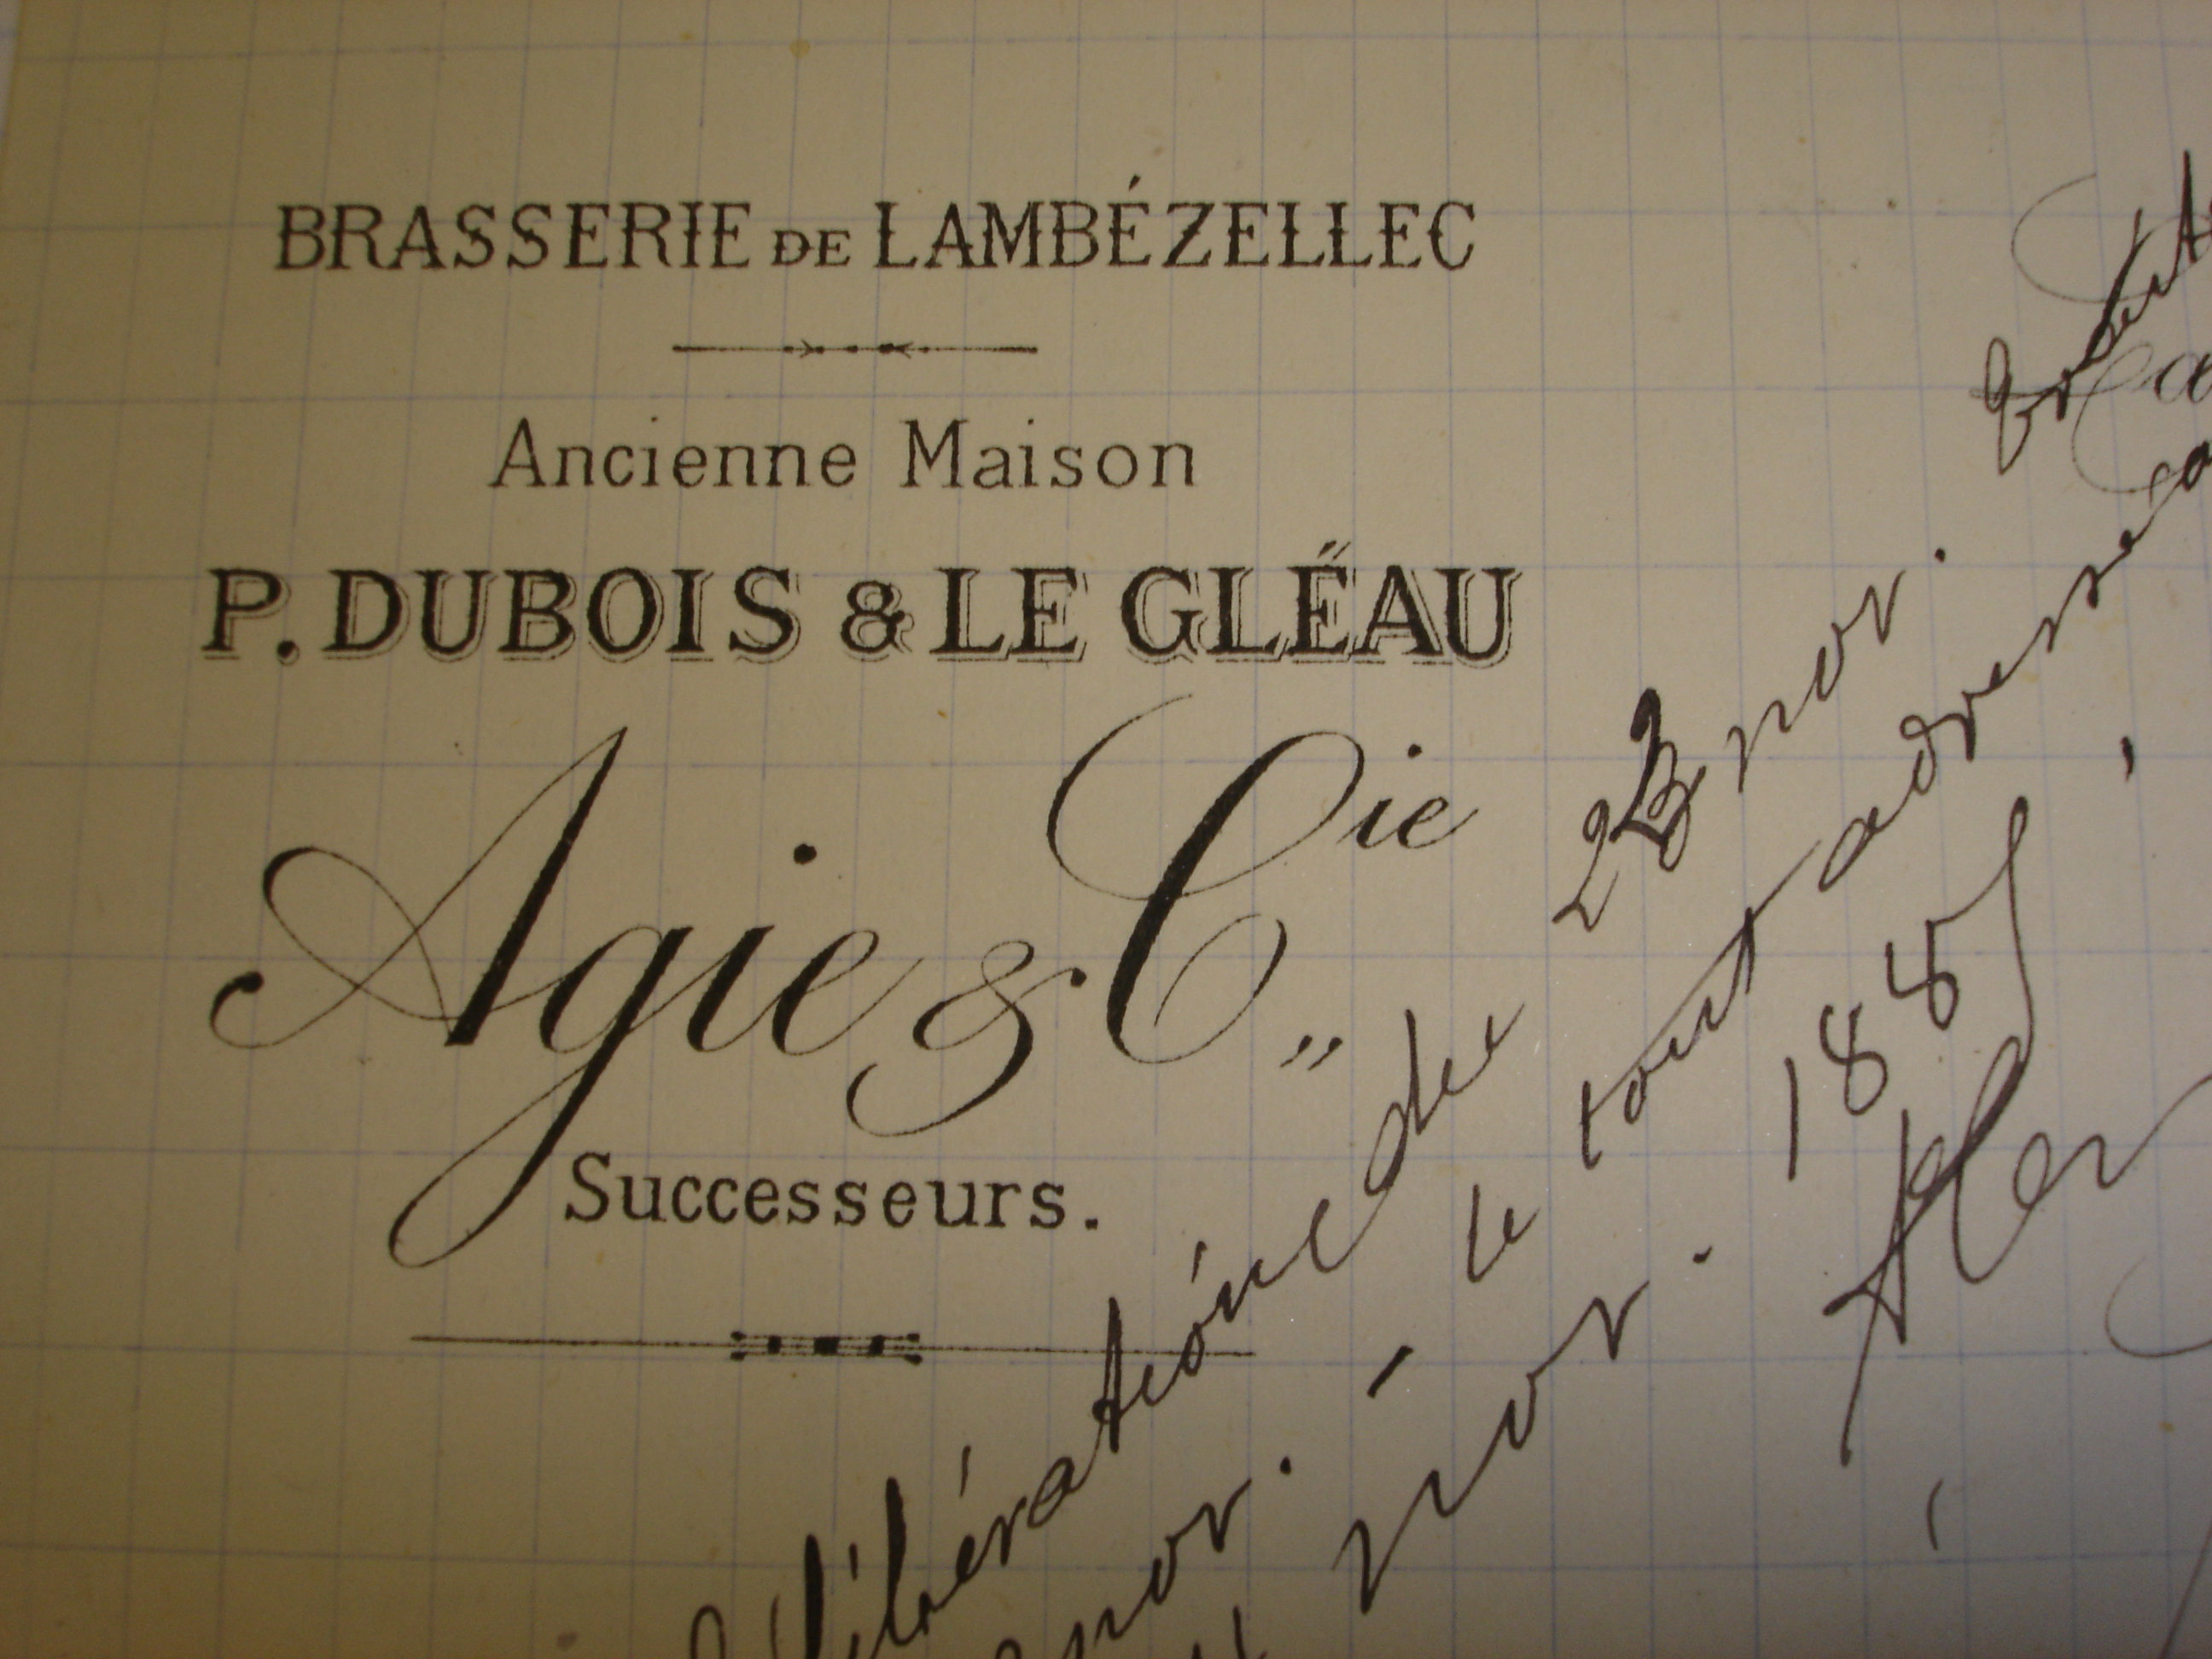 BRASSERIE DE LAMBÉZELLEC
Ancienne Maison
P. DUBOIS & LE GLÉAU
Agie & Cie
Successeurs.
délibération du 23 nov.
nov. - le tout adressé
nov. 188